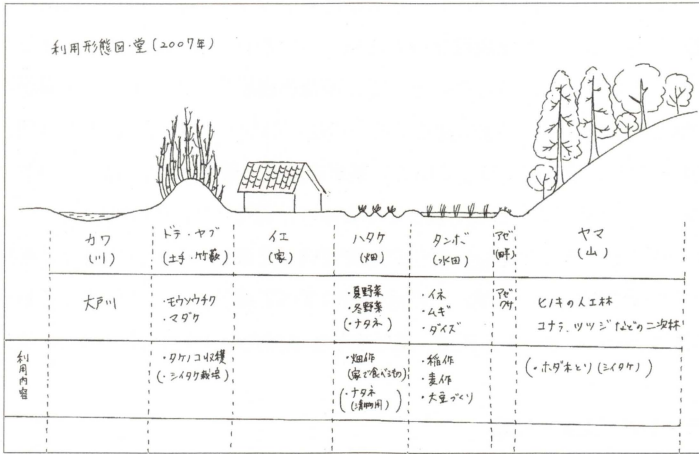 利用形態図・堂(2007年)
カワ
(川)
ドテ・ヤブ
(土手・竹藪)
イエ
(家)
ハタケ
(畑)
タンボ
(水田)
アゼ
(畔)
ヤマ
(山)
大戸川
・モウソウチク
・マダケ
・夏野菜
・冬野菜
(・ナタネ)
・イネ
・ムギ
・ダイズ
アゼ
クサ
ヒノキの人工林
コナラ、ツツジなどの二次林
利用内容
・タケノコ収穫
(・シイタケ栽培)
・畑作
(家で食べるもの)
(・ナタネ
(漬物用))
・稲作
・麦作
・大豆づくり
(・ホダ木とり(シイタケ))